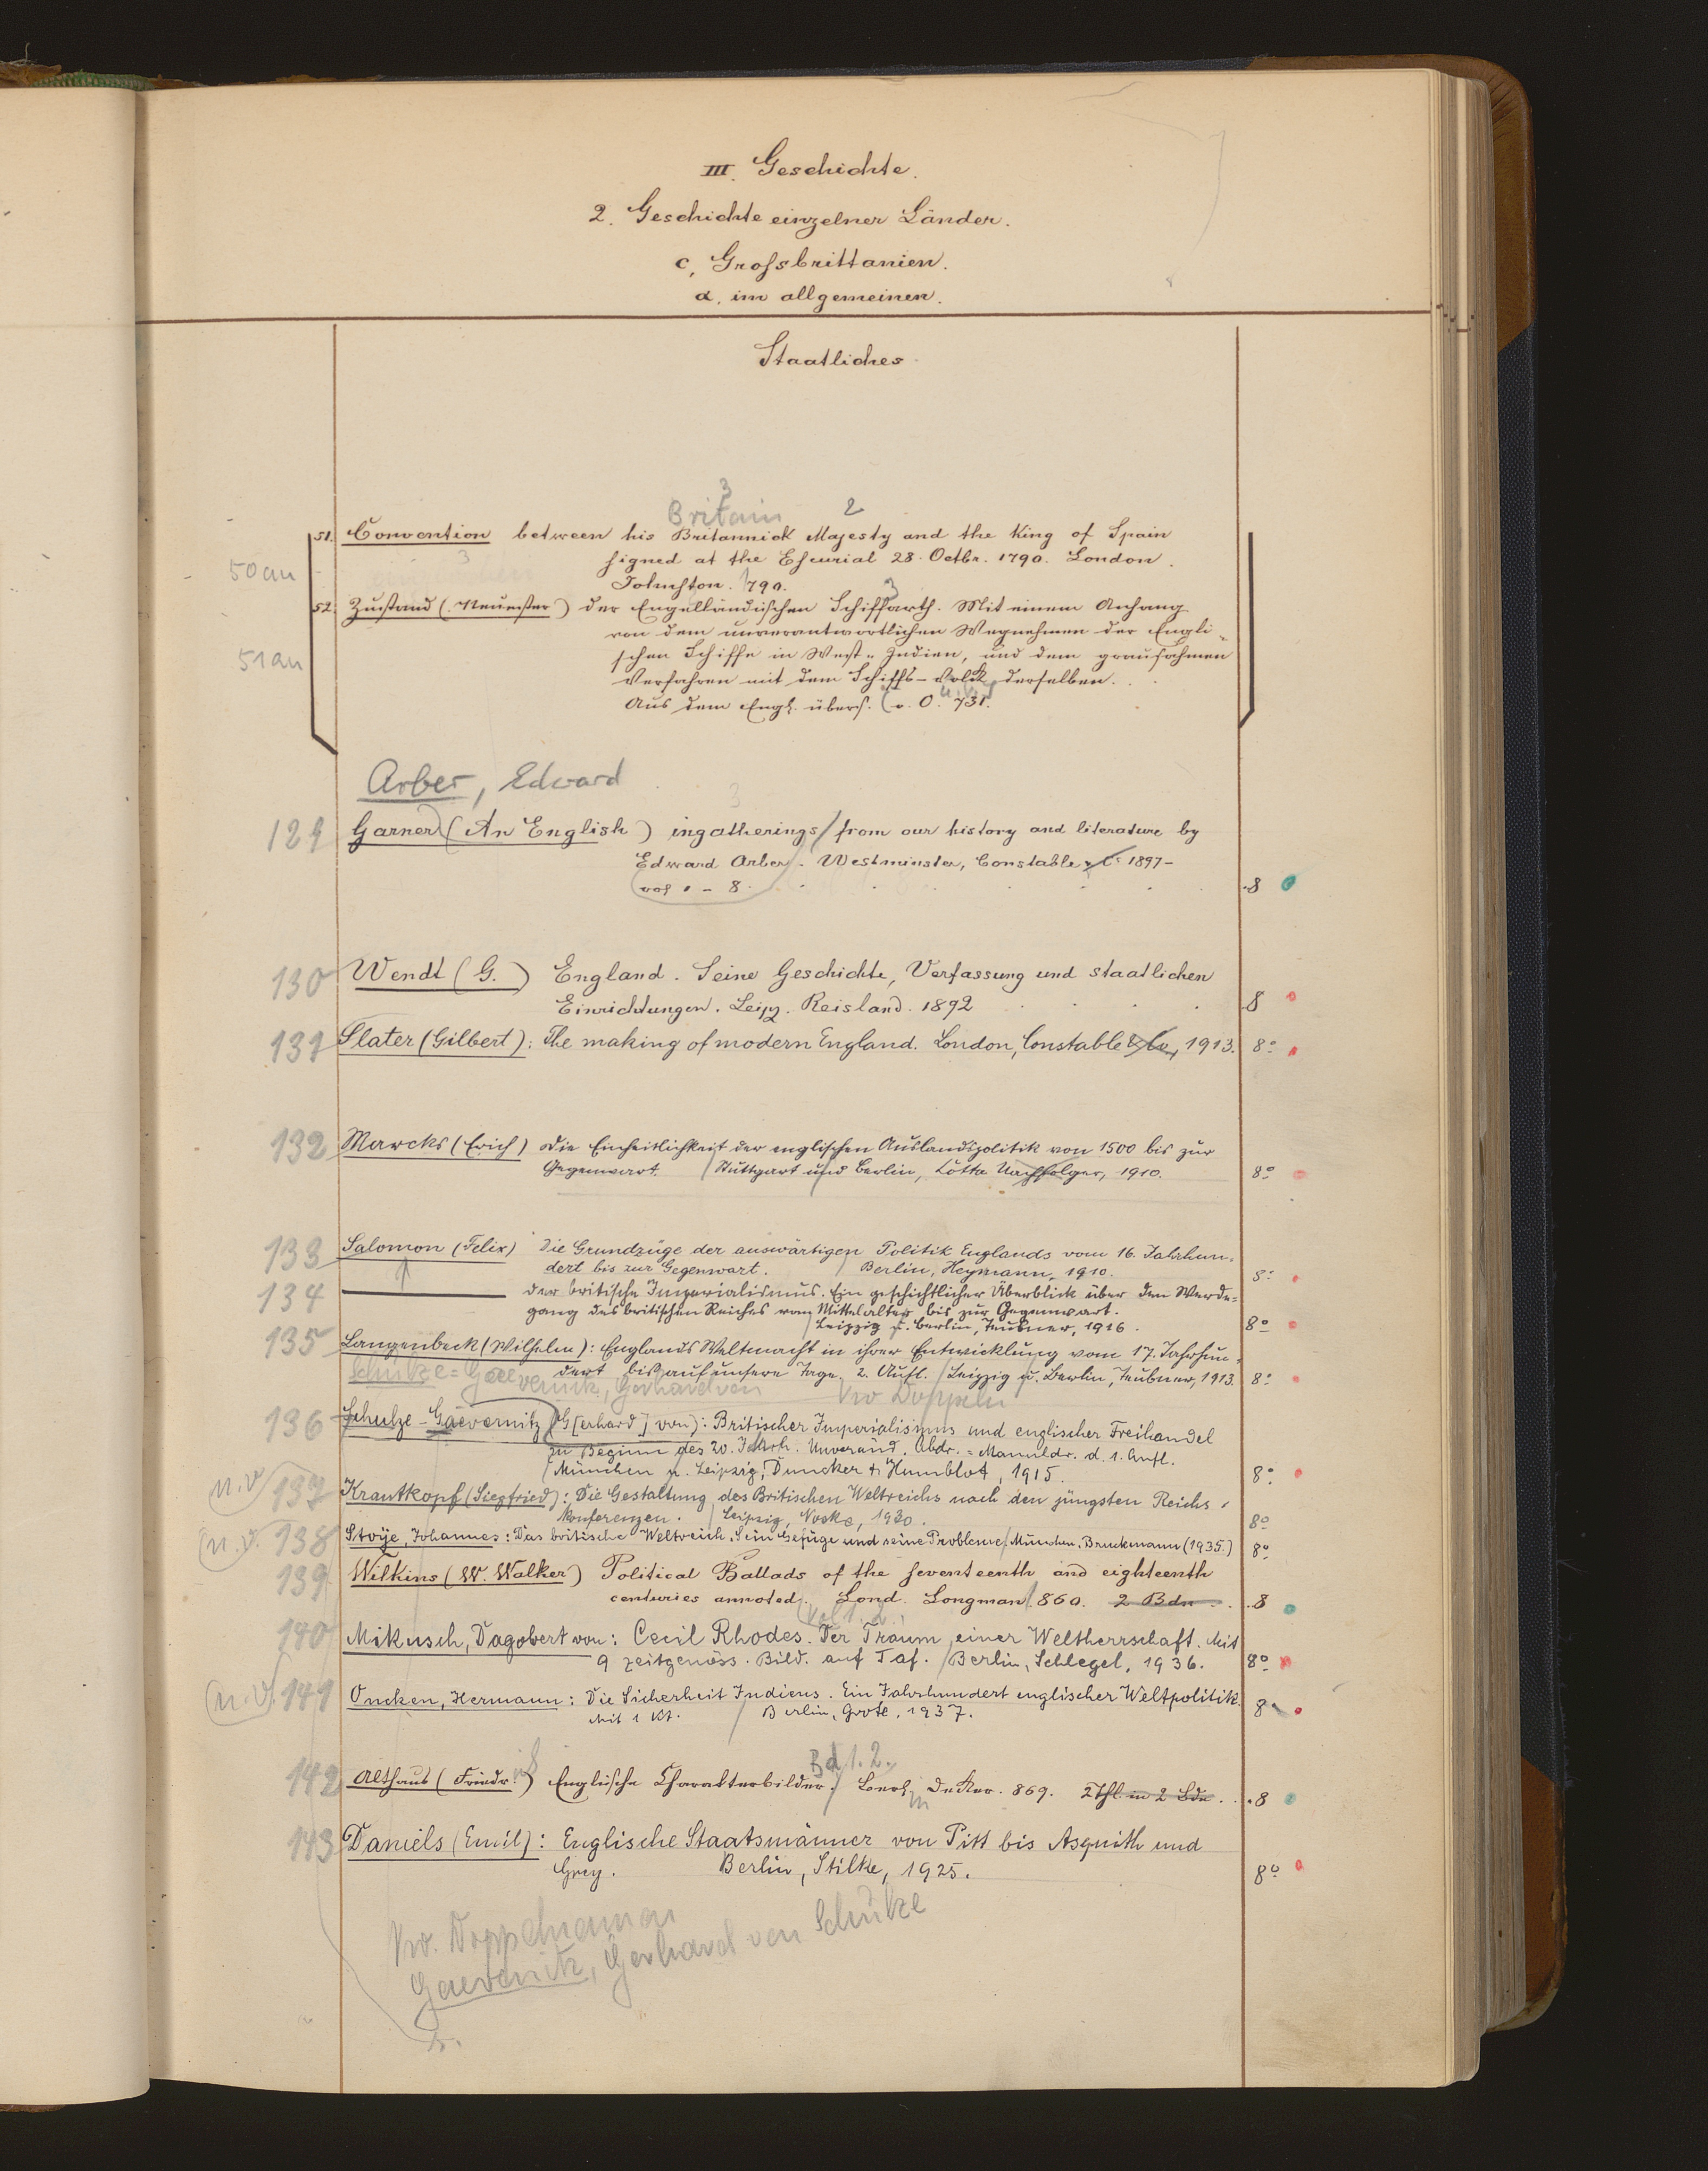 III. Geschichte.
2. Geschichte einzelner Länder.
c, Grossbrittanien.
a. im allgemeinen.
Staatliches
3
Britain 2
51. Convention between his Britannick Majesty and the King of Spain
signed at the Escurial 28. Octbr. 1790. London.
50 an
Johnston. 790.
3
52. Zustand (Neuester) der Engelländischen Schiffarth. Mit einem Anhang
von dem unverantwortlichen Wegnehmen der Engli-
51 an
schen Schiffe in West-Indien, und dem grausahmen
Verfahren mit dem Schiffs-Volck derselben.
Aus dem Engl. übers. o. O. 731.
Arber, Edward
129 Garner (An English) ingatherings from our history and literature by
Edward Arber. Westminster, Constable & Co 1897-
vol 1 - 8. 8
130 Wendt (G.) England. Seine Geschichte, Verfassung und staatlichen
Einrichtungen. Leipz. Reisland. 1892 8
131 Slater (Gilbert): The making of modern England. London, Constable & Co, 1913. 8°
132 Marcks (Erich) Die Einheitlichkeit der englischen Auslandspolitik von 1500 bis zur
Gegenwart. Stuttgart und Berlin, Cotta Nachfolger, 1910. 8°
133 Salomon (Felix) Die Grundzüge der auswärtigen Politik Englands vom 16. Jahrhun-
dert bis zur Gegenwart. Berlin, Heymann, 1910. 8°
134 —— der britische Imperialismus. Ein geschichtlicher Überblick über den Werde-
gang des britischen Reiches vom Mittelalter bis zur Gegenwart.
Leipzig u. Berlin, Teubner, 1916. 8°
135 Langenbeck (Wilhelm): Englands Weltmacht in ihrer Entwicklung vom 17. Jahrhun-
dert bis auf unsere Tage. 2. Aufl. Leipzig u. Berlin, Teubner, 1913. 8°
Schulze-Gaevernitz, Gerhard von Vw Doppeln
136 Schulze-Gaevernitz (G[erhard] von): Britischer Imperialismus und englischer Freihandel
zu Beginn des 20. Jahrh. Unveränd. Abdr. = Manuldr. d. 1. Aufl.
München u. Leipzig, Duncker & Humblot, 1915. 8°
n.v 137 Krautkopf (Siegfried): Die Gestaltung des Britischen Weltreichs nach den jüngsten Reichs-
konferenzen. Leipzig, Noske, 1930. 8°
n.v. 138 Stoye, Johannes: Das britische Weltreich. Sein Gefüge und seine Probleme. München, Bruckmann (1935.) 8°
139 Wilkins (W. Walker) Political Ballads of the seventeenth and eighteenth
centuries annoted. Lond. Longman 860. 2 Bde 8
Vol 1. 2.
140 Mikusch, Dagobert von: Cecil Rhodes. Der Traum einer Weltherrschaft. Mit
9 zeitgenöss. Bild. auf Taf. Berlin, Schlegel, 1936. 8°
n.v. 141 Oncken, Hermann: Die Sicherheit Indiens. Ein Jahrhundert englischer Weltpolitik.
Mit 1 Kt. Berlin, Grote, 1937. 8°
Bd 1. 2.
142 Althaus (Friedr.) Englische Charakterbilder. Berl. Decker. 869. 2 Thl. in 2 Bde 8
143 Daniels (Emil): Englische Staatsmänner von Pitt bis Asquith und
Grey. Berlin, Stilke, 1925. 8°
Vw. Doppelnamen
Gaevernitz, Gerhard von Schulze